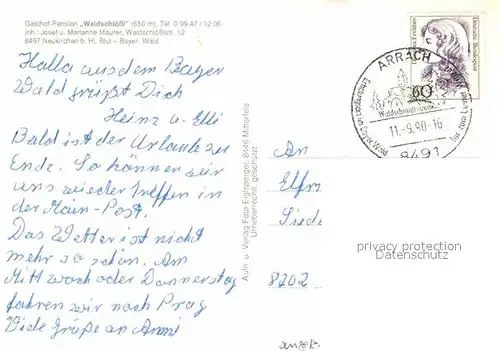 Gasthof-Pension „Waldschlößl" (650 m), Tel. 0 99 47 / 12 06
Inh.: Josef u. Marianne Maurer, Waldschlößlstr. 12
8497 Neukirchen b. Hl. Blut – Bayer. Wald
Hallo aus dem Bayer
Wald grüßt Dich
Heinz u. Elli
Bald ist der Urlaub zu
Ende. So können wir
uns wieder treffen in
der Main-Post.
Das Wetter ist nicht
mehr so schön. Am
Mittwoch oder Donnerstag
fahren wir nach Prag
Viele Grüße an Anni
Aufn. u. Verlag Foto-Eiglsperger, 8446 Mitterfels
Urheberrechtl. geschützt
Deutsche Bundespost
60
ARRACH
11.-9.90-16
8491
An
8702
privacy protection
Datenschutz